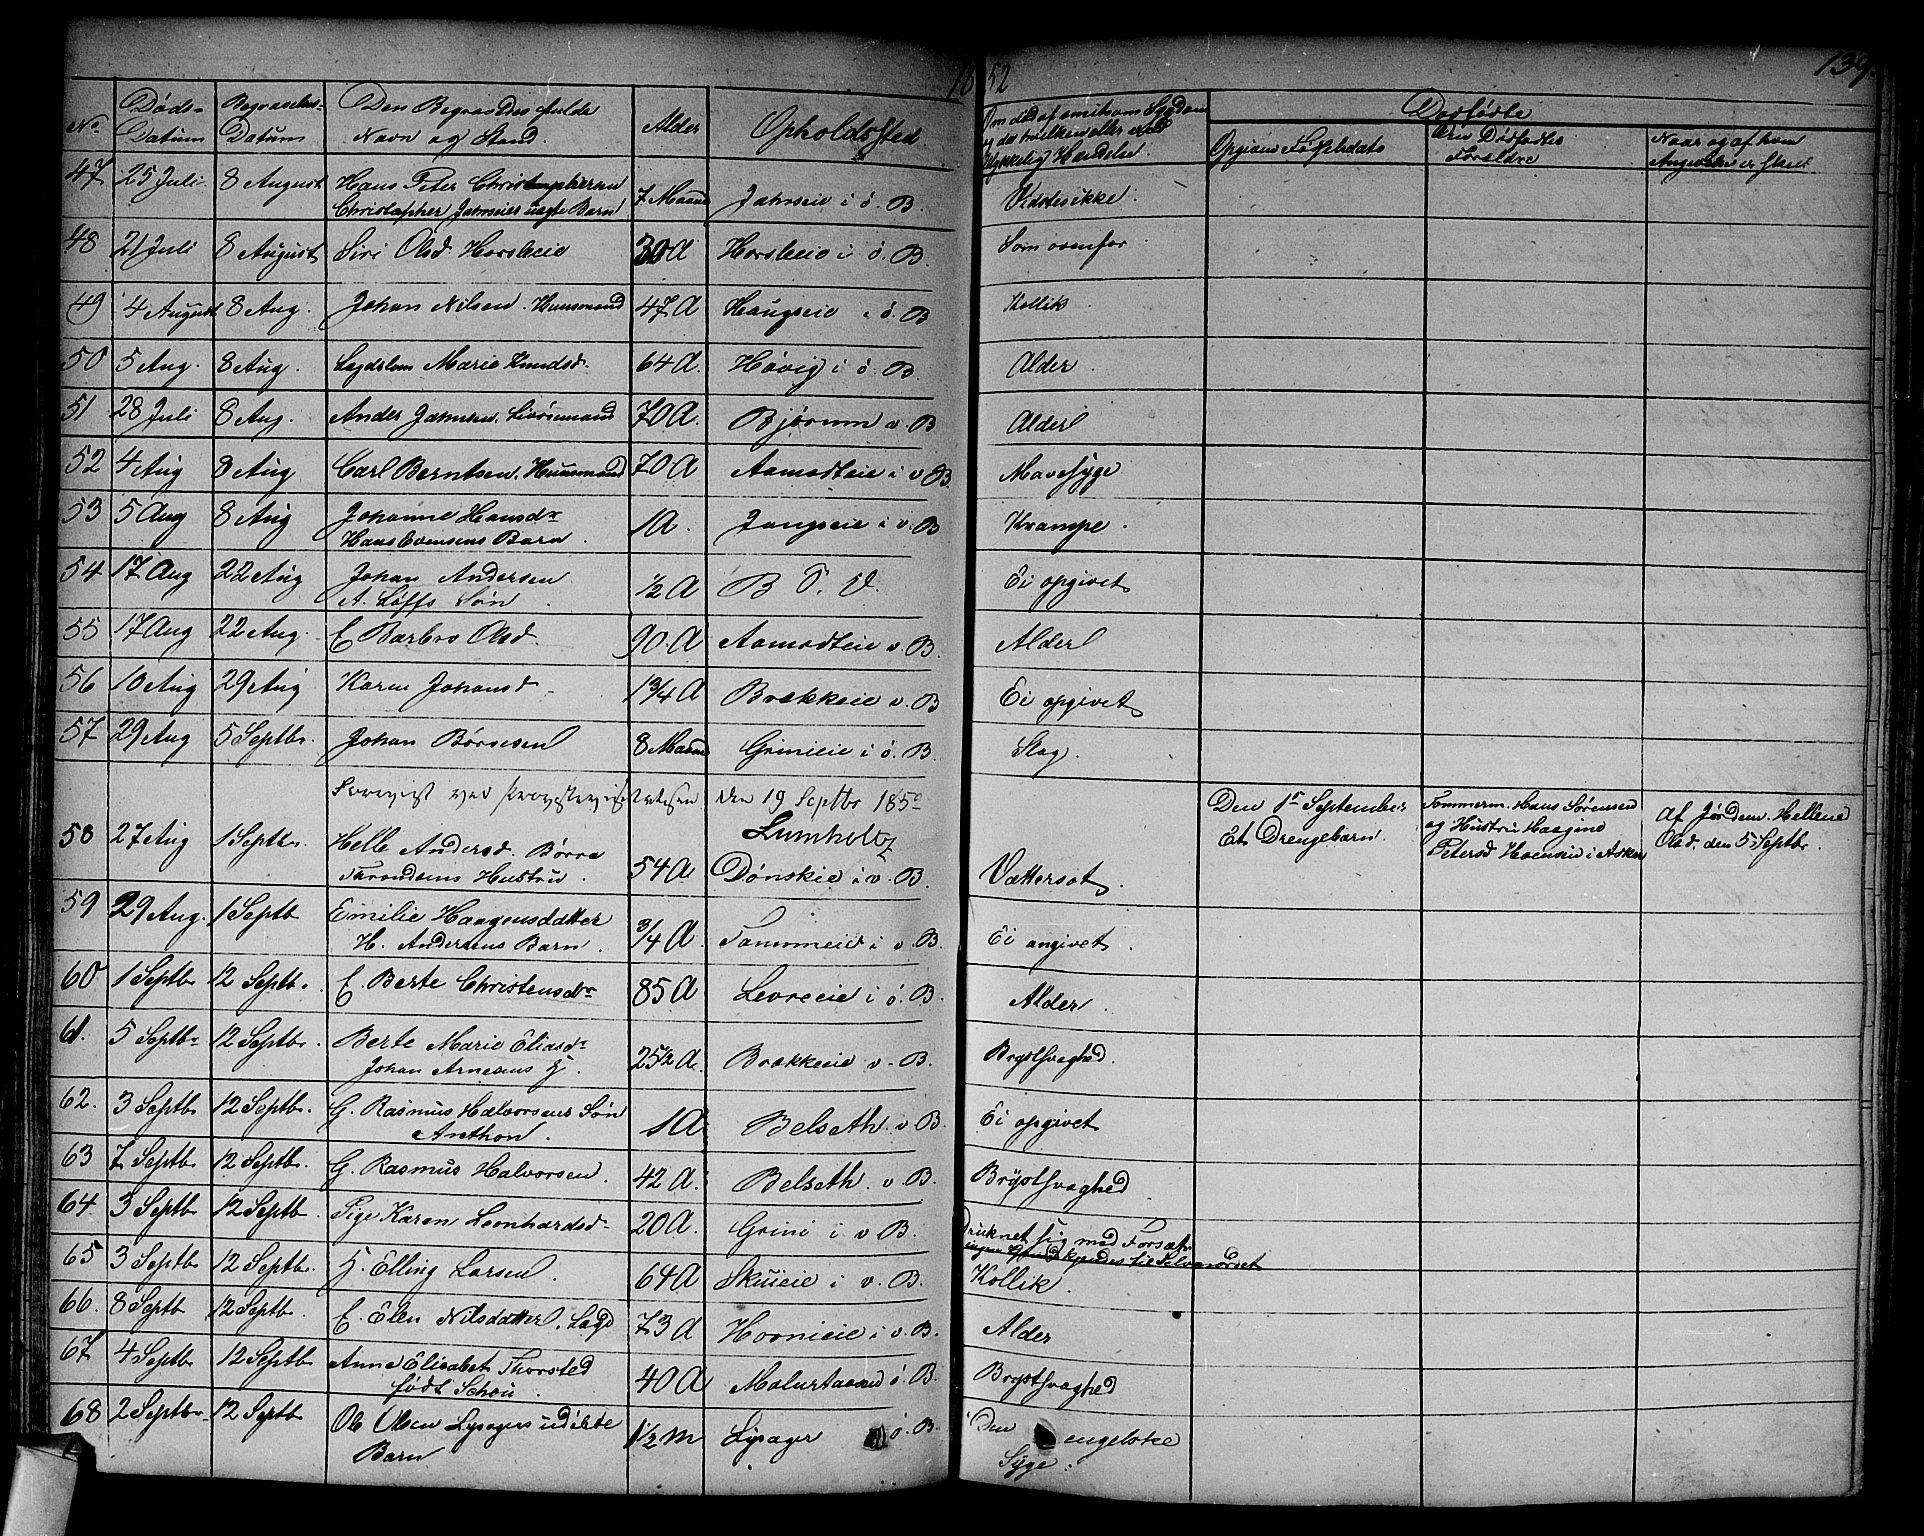 1852
139.
No.
Døds-Datum
Begravelses-Datum
Den Begravedes fulde Navn og Stand.
Alder
Opholdssted.
Om død af smitsom Sygdom og da hvilken eller ved ulykkelig Hændelse.
Dødfødte
Opgivne Fødselsdato
Den Dødfødtes Forældre
Naar og af hvem Angivelse er skeet
47 25 Juli. 8 August Hans Peter Christophersen 7 Maan Jahrseie i ø. B. Vidstes ikke.
Christopher Jahrseies uægte Barn
48 21 Juli 8 August Siri Olsd. Horsleeie 30 A Horsleeie i ø. B. Som ovenfor
49 4 August 8 Aug. Johan Nilsen. Huusmand 47 A Haugseie i ø. B Kollik.
50 5 Aug. 8 Aug. Lægdslem Marie Knudsd. 64 A. Høvig i ø. B. Alder.
51 28 Juli 8 Aug. Ander Jahnsen. 70 A. Bjørum v. B Alder
52 4 Aug 8 Aug Carl Berntsen. Huusmand 70 A Aamodteie i v B. Mavesyge
53 5 Aug 8 Aug Johanne Hansdr 1 A. Jongseie i v. B Krampe.
Hans Evensens Barn.
54 17 Aug 22 Aug Johan Andersen ½ A B. Ei opgivet
A. Løffs Søn.
55 17 Aug 22 Aug. E. Barbro Olsd. 90 A Aamodteie v. B. Alder
56 10 Aug 29 Aug Karen Johansd. 1¾ A Brækkeie v. B Ei opgivet
57 29 Aug 5 Septbr. Johan Børresen 8 Maan Grinieie i ø. B. Slag.
Foreviist ved Provstevisitatsen den 19 Septbr 1852
Lumholtz
Den 1r September Et Drengebarn.
Tømmerm. Hans Sørensen og Hustru Petersd i Asker
af Jordem. Hellene Olsd. den 5 Septbr.
58 27 Aug 1 Septbr. Helle Andersd. Børre 54 A Dønskie i v. B. Vattersot.
Hustru.
59 29 Aug. 1 Septb Emilie Haagensdatter ¾ A. i v. B. Ei angivet.
H. Andersens Barn.
60 1 Septb 12 Septb. E. Berte Christensdr 85 A Levreeie i ø. B. Alder.
61. 5 Septbr 12 Septbr. Berte Marie Eliasdr 25½ A. Brækkeeie v. B. Brystsvaghed.
Johan Arnesens H.
62. 3 Septb 12 Septbr. G. Rasmus Halvorsens Søn 1 A. Belseth v. B. Ei opgivet
Anthon.
63 7 Septbr 12 Septb. G. Rasmus Halvorsen. 42 A. Belseth. v. B. Brystsvaghed
64 3 Septb 12 Septb. Pige Karen Leonhardsd. 20 A. Grini i v B. Druknet sig med Forsæt.
ingen til Selvmordet
65 3 Septbr 12 Septbr. H. Elling Larsen. 64 A Skuieie i v. B. Kollik.
66. 8 Septb 12 Septb. E. Elen Nilsdatter. Lægd 73 A i v. B. Alder
67. 4 Septb 12 Septb Anne Elisabet Thorsted 40 A ø. B. Brystsvaghed
født Schou.
68 2 Septbr. 12 Septb Ole Olsen Lysagers udøbte 1½ M Lysager ø. B. Den engelske
Barn Syge.